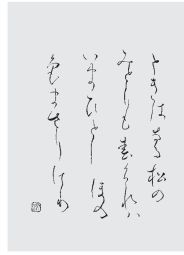 ときはなる松の
みとりも春くれハ
いまひとしほの
色まさりけり